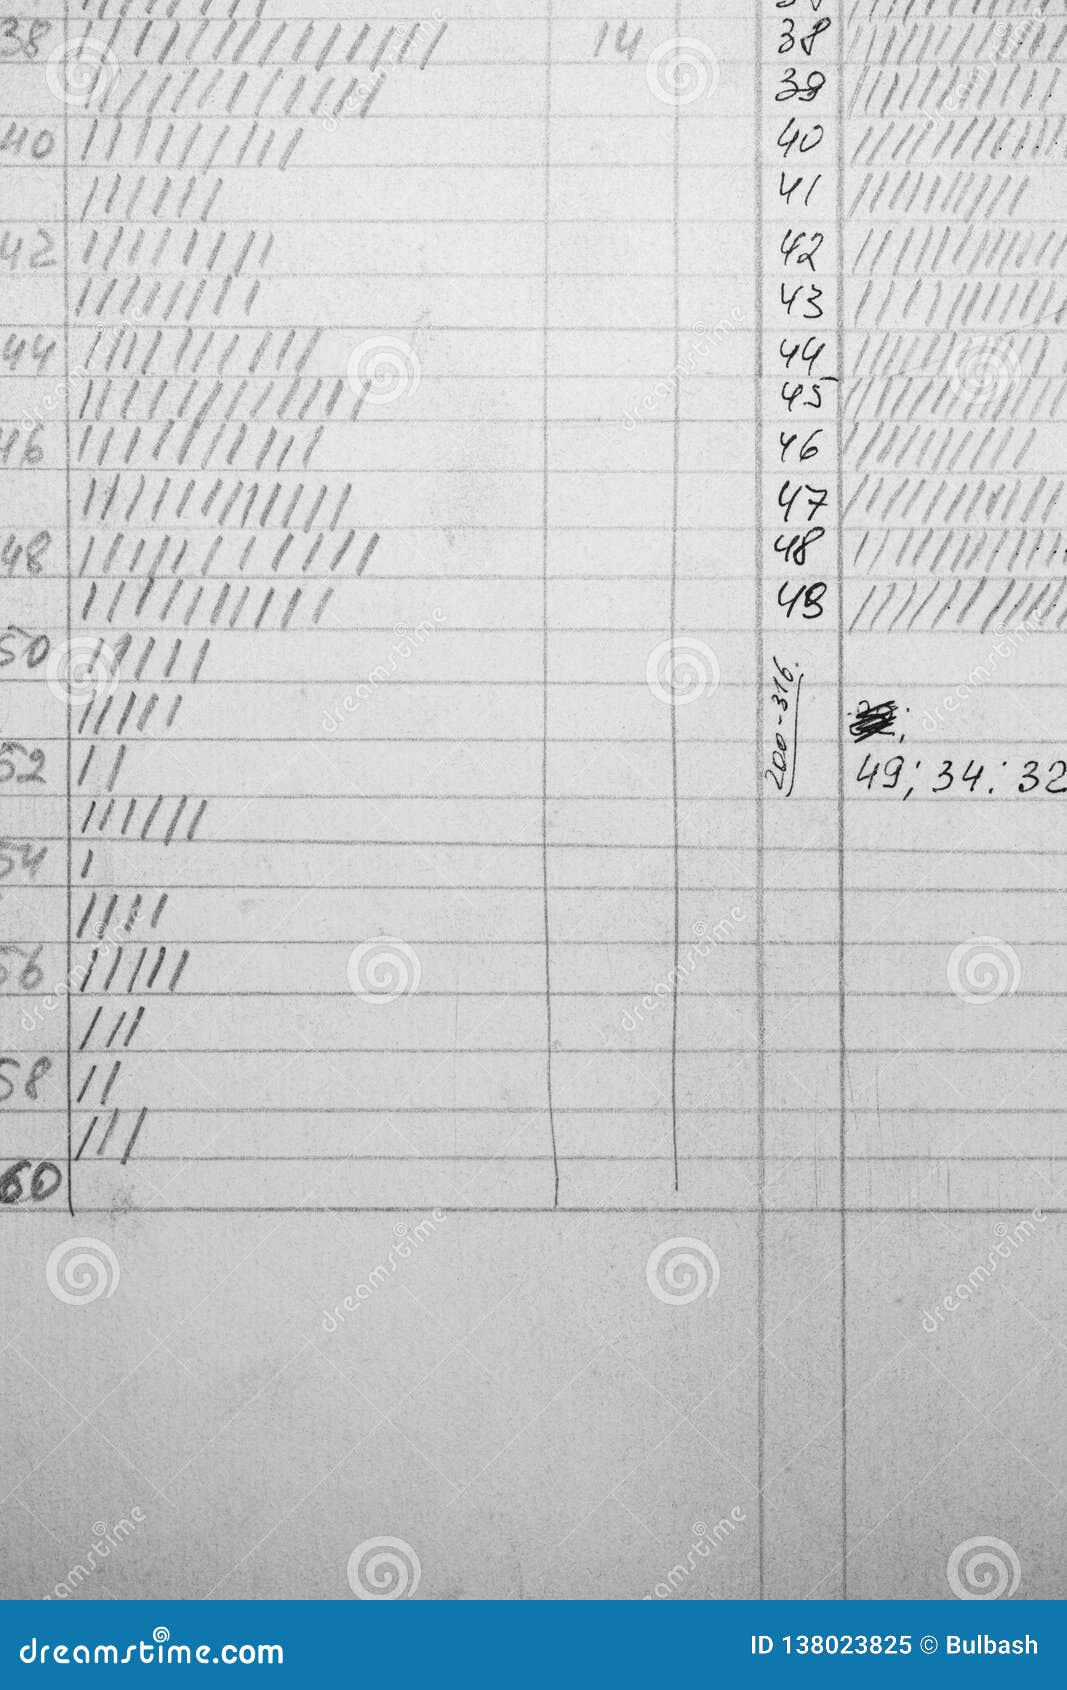 38 14 38
39
40 40
41
42 42
43
44 44
45
46 46
47
48 48
49
50
200-316.
52 49; 34: 32
54
56
58
60
dreamstime.com ID 138023825 © Bulbash